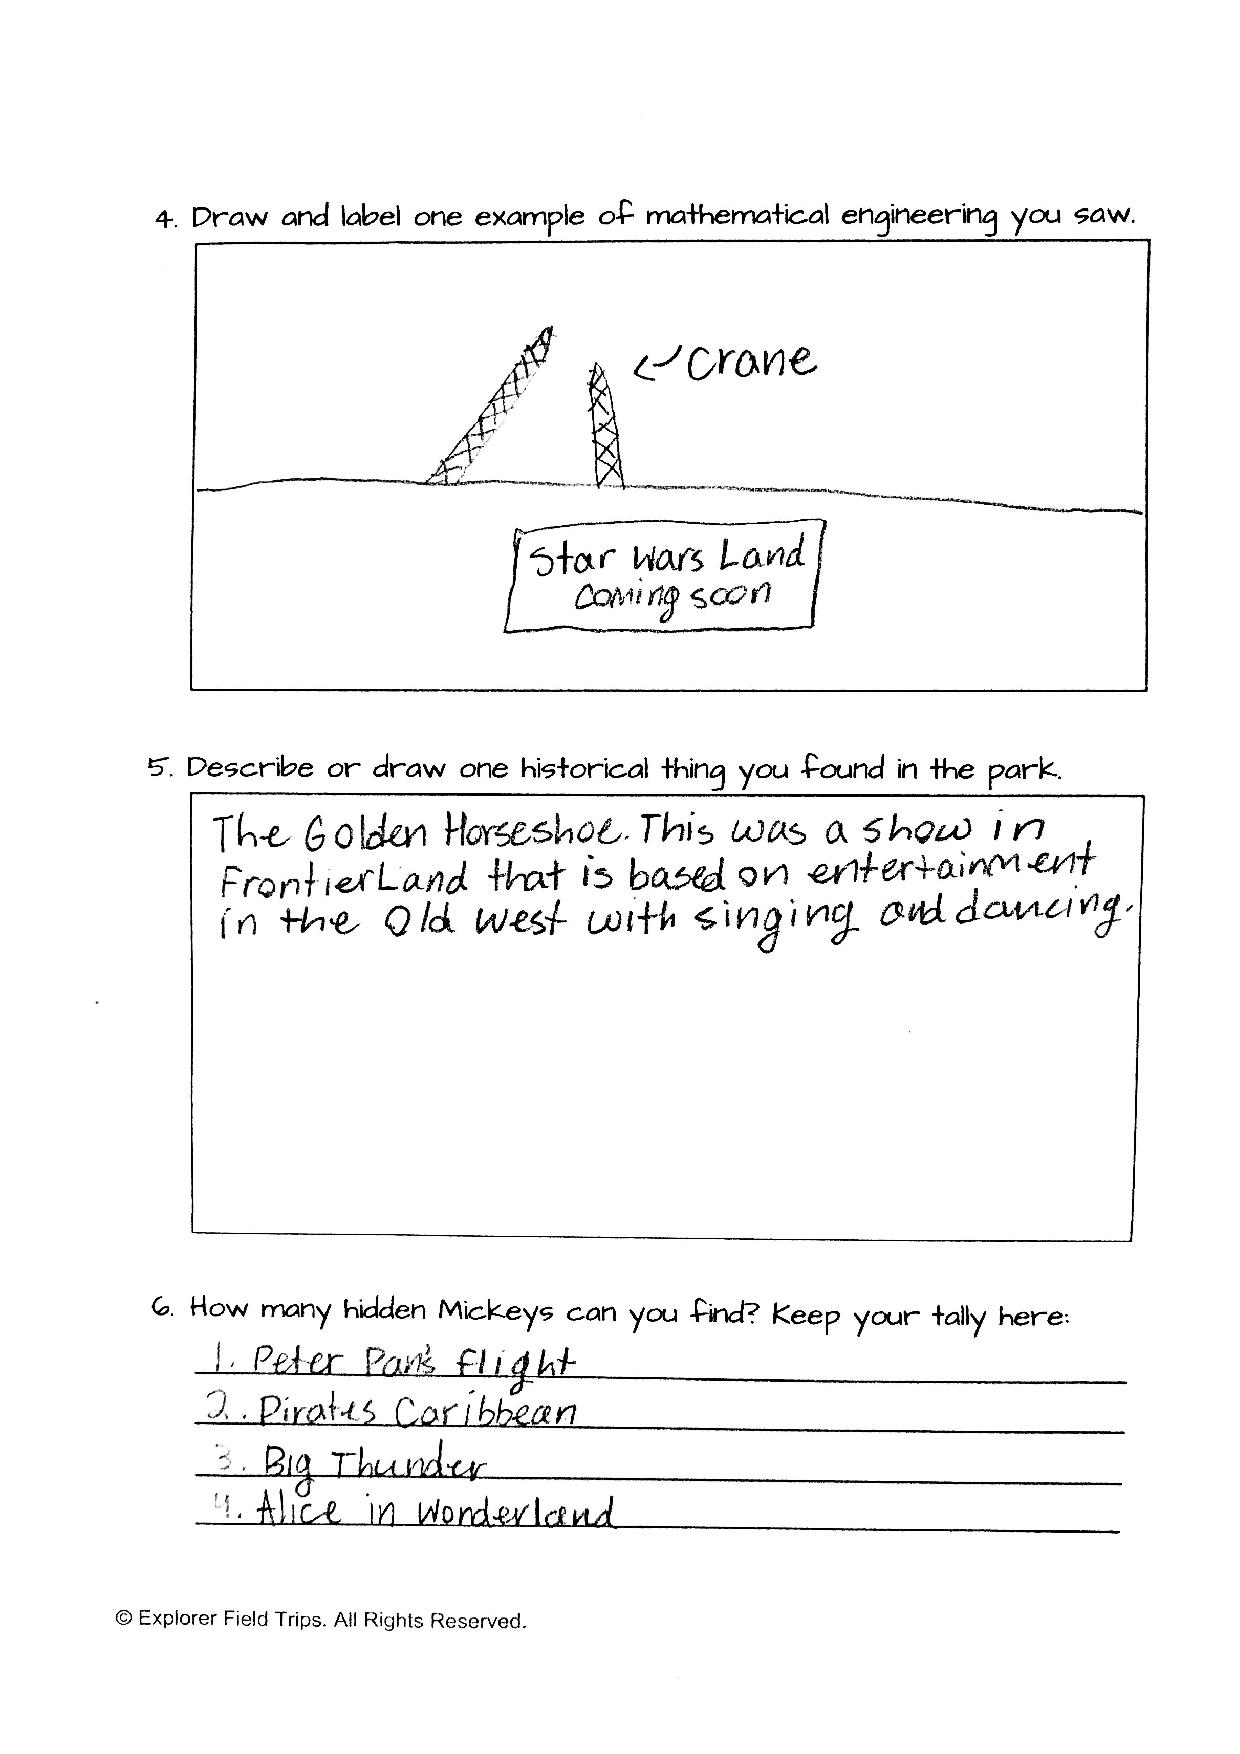 4. Draw and label one example of mathematical engineering you saw.
Crane
Star Wars Land
Coming soon
5. Describe or draw one historical thing you found in the park.
The Golden Horseshoe. This was a show in
FrontierLand that is based on entertainment
in the Old West with singing and dancing.
6. How many hidden Mickeys can you find? Keep your tally here:
1. Peter Pan's flight
2. Pirates Caribbean
3. Big Thunder
4. Alice in Wonderland
© Explorer Field Trips. All Rights Reserved.